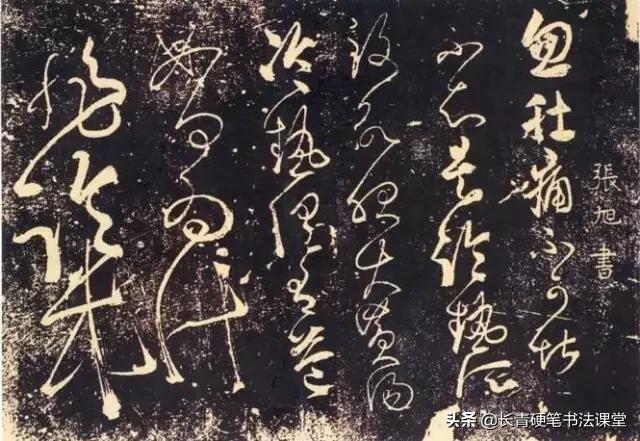 張旭書
忽肚痛不可堪
不知是冷熱所
致欲服大黃湯
冷熱俱有益
如何為計
非臨床
头条 @长青硬笔书法课堂